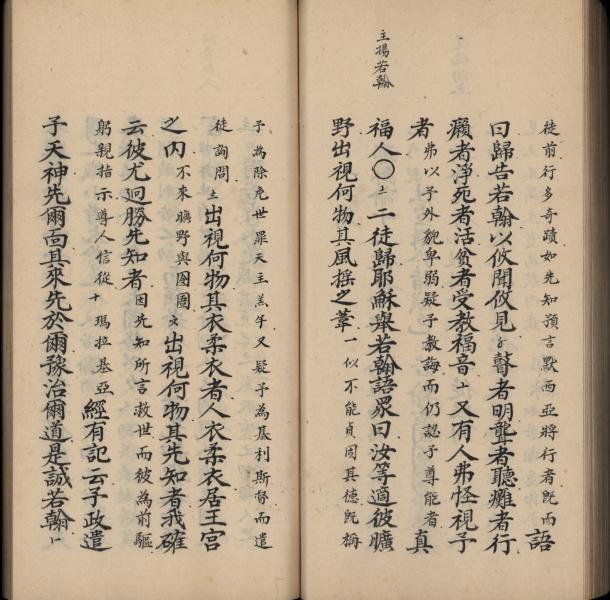 主揚若翰
徒前行多奇蹟如先知預言默西亞將行者既而語
曰歸告若翰以攸聞攸見瞽者明聾者聽癱者行
癩者淨死者活貧者受教福音十又有人弗怪視予
者弗以予外貌卑弱疑予教誨而仍認予尊能者真
福人〇二徒歸耶穌舉若翰語眾曰汝等適彼曠
野出視何物其風搖之葦一似不能貞固其德既稱
予為除免世罪天主羔羊又疑予為基利斯督而遣
徒詢問出視何物其衣柔衣者人衣柔衣居王宮
之內不來曠野與囹圄出視何物其先知者我確
云彼尤迥勝先知者因先知所言救世而彼為前驅
躬親指示尊人信從十瑪拉基亞經有記云予政遣
子天神先爾面其來先於爾豫治爾道是誠若翰